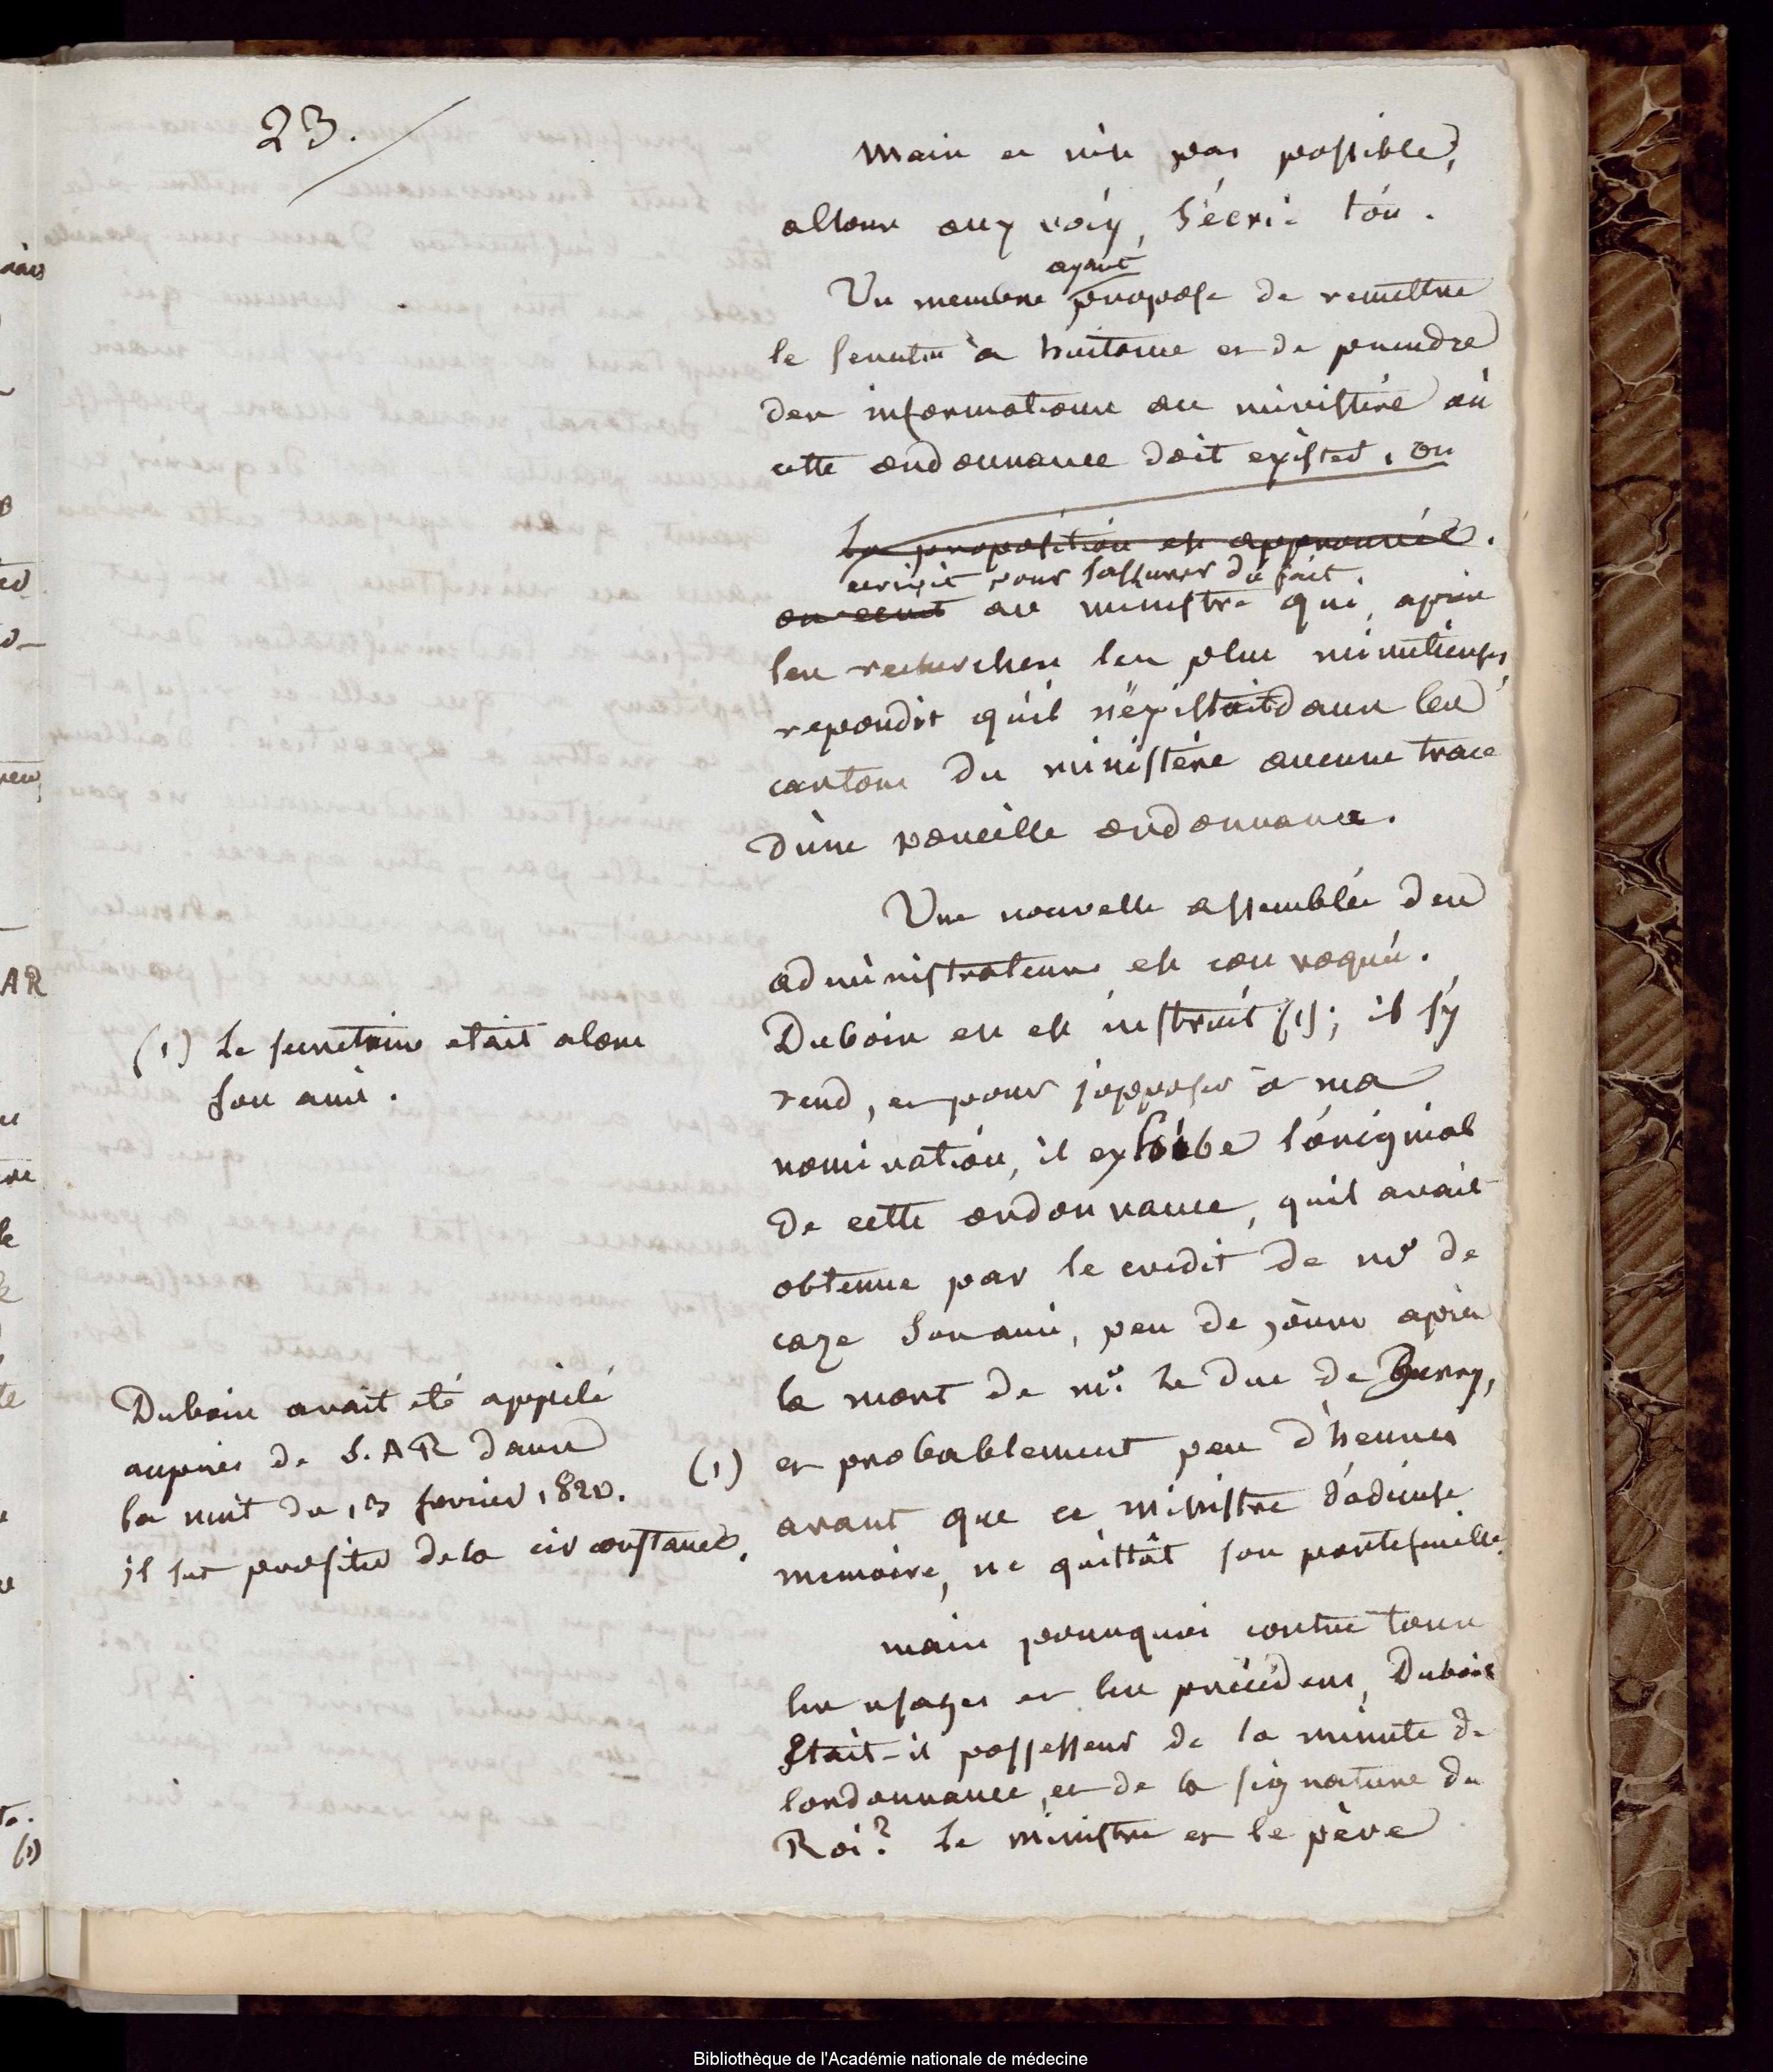 23.
mais ce n'est pas possible,
allons aux voix, s'écrie t'on.
ayant
Un membre propose de remettre
le scrutin à huitaine et de prendre
des informations au ministère où
cette ordonnance doit exister, on
la proposition est approuvée.
ecrivit pour s'assurer du fait.
on ecrit au ministre qui, après
les recherches les plus minutieuses,
repondit qu'il n'existait dans les
cartons du ministère aucune trace
d'une pareille ordonnance.
Une nouvelle assemblée des
administrateurs est convoquée.
Dubois en est instruit (1); il s'y
rend, et pour s'opposer à ma
nomination, il exhibe l'original
de cette ordonnance, qu'il avait
obtenue par le credit de mr de
caze son ami, peu de jours après
la mort de mr. Le duc de Berry,
et probablement peu d'heures
avant que ce ministre d'odieuse
memoire, ne quittât son portefeuille.
mais pourquoi contre tous
les usages et les précédens, Dubois
Etait-il possesseur de la minute de
l'ordonnance, et de la signature du
Roi? Le ministre et le père
(1) Le secretaire etait alors
son ami.
Dubois avait été appelé
auprès de S.AR dans
la nuit du 13 fevrier 1820. (1)
il sut profiter de la circonstance.
AR
(1)
Bibliothèque de l'Académie nationale de médecine